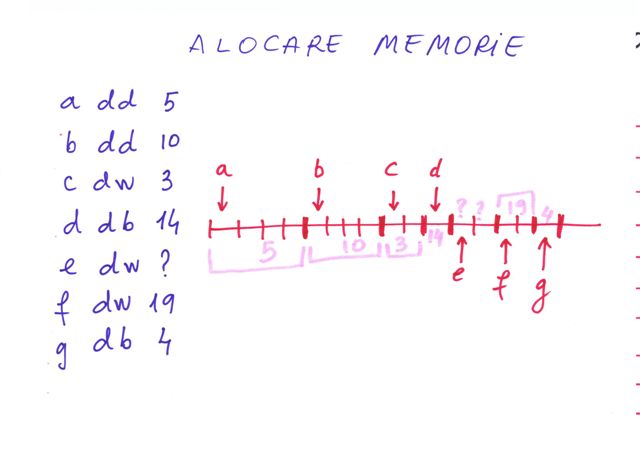 ALOCARE MEMORIE
a dd 5
b dd 10
c dw 3
d db 14
e dw ?
f dw 19
g db 4
a b c d
? ? 19 4
5 10 3 14
e f g